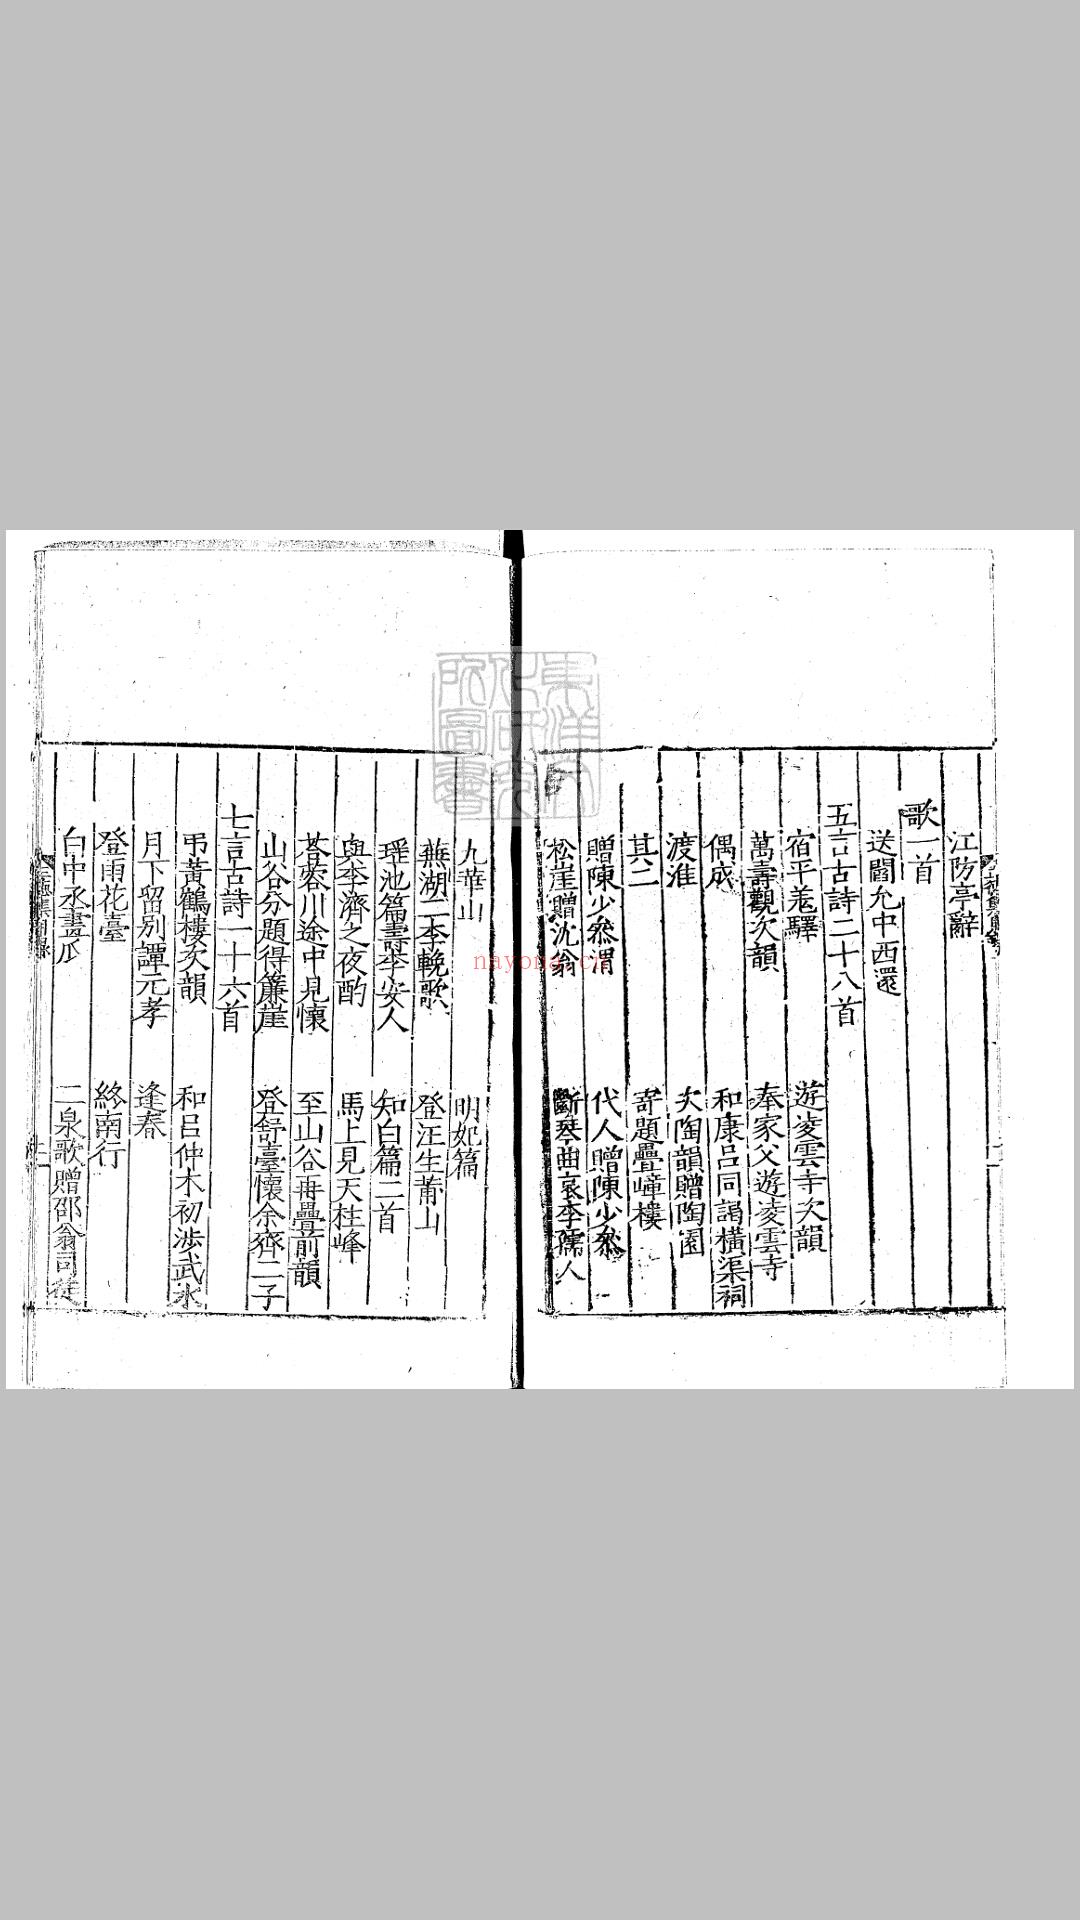 江防亭辭
歌一首
送閻允中西還
五言古詩二十八首
宿平羗驛 遊凌雲寺次韻
萬壽觀次韻 奉家父遊凌雲寺
偶成 和康呂同謁橫渠祠
渡淮 次陶韻贈陶園
其二 寄題疊嶂樓
贈陳少叅渭 代人贈陳少叅
松崖贈沈翁 斷琴曲哀李孺人
九華山 明妃篇
蕪湖二李輓歌 登汪生莆山
瑶池篇壽李安人 知白篇二首
與李濟之夜酌 馬上見天柱峰
荅蓉川途中見懷 至山谷再疊前韻
山谷分題得簾崖 登舒臺懷余齊二子
七言古詩一十六首
弔黃鶴樓次韻 和呂仲木初涉武水
月下留别譚元孝 逢春
登雨花臺 終南行
白中丞畫瓜 二泉歌贈邵翁司徒
東洋文化研究所圖書
nayona.cn